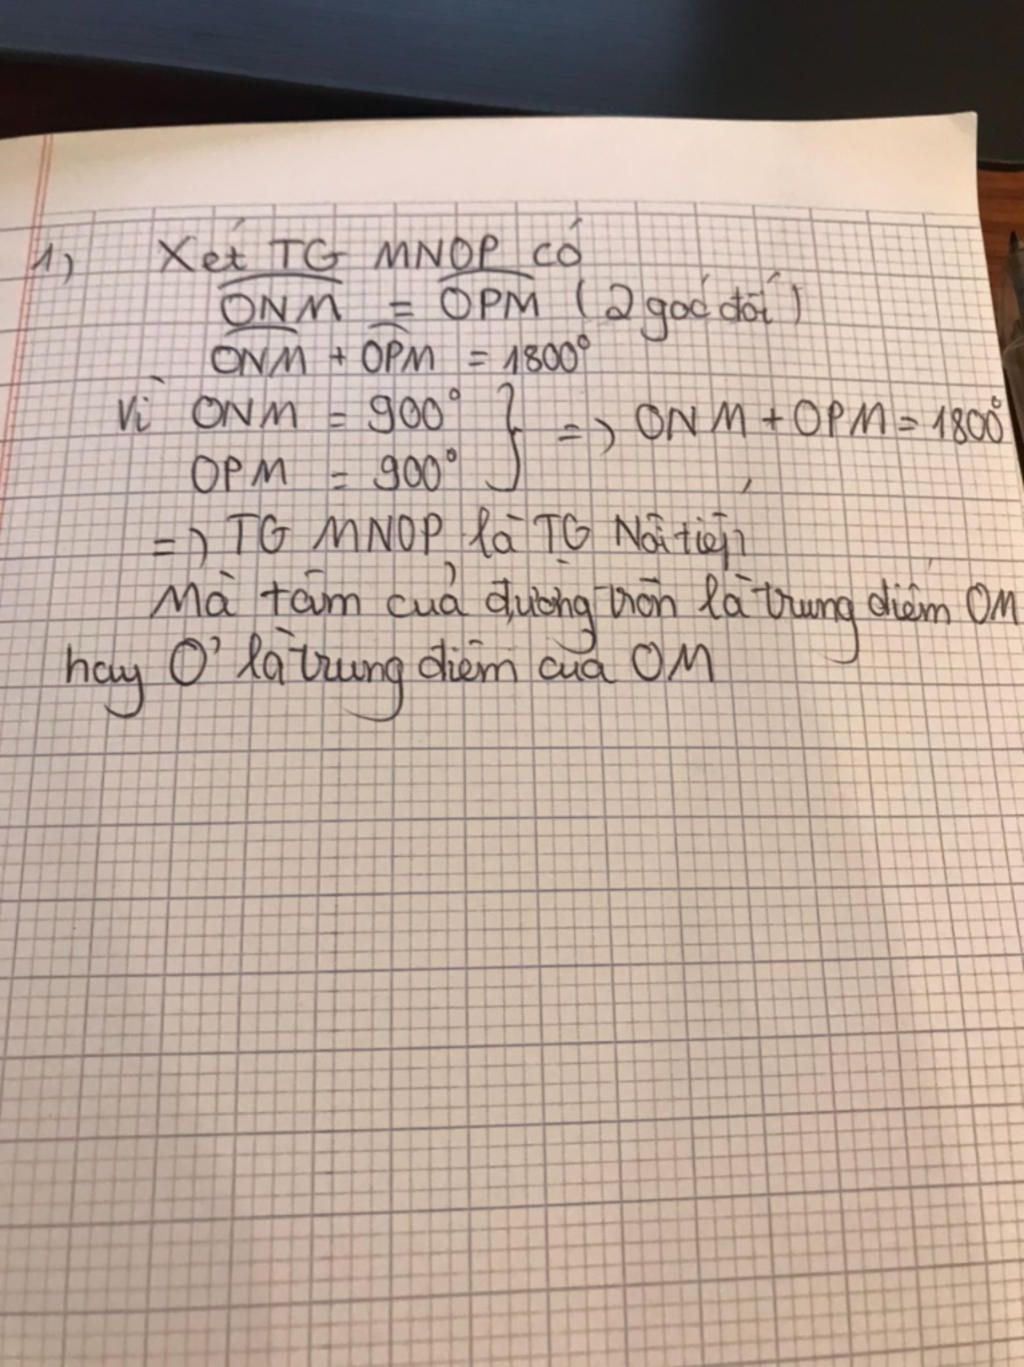 1) Xét TG MNOP có
ONM = OPM (2 góc đối)
ONM + OPM = 1800°
Vì ONM = 900° } => ONM + OPM = 1800°
OPM = 900°
=> TG MNOP là TG Nội tiếp
Mà tâm của đường tròn là trung điểm OM
hay O' là trung điểm của OM